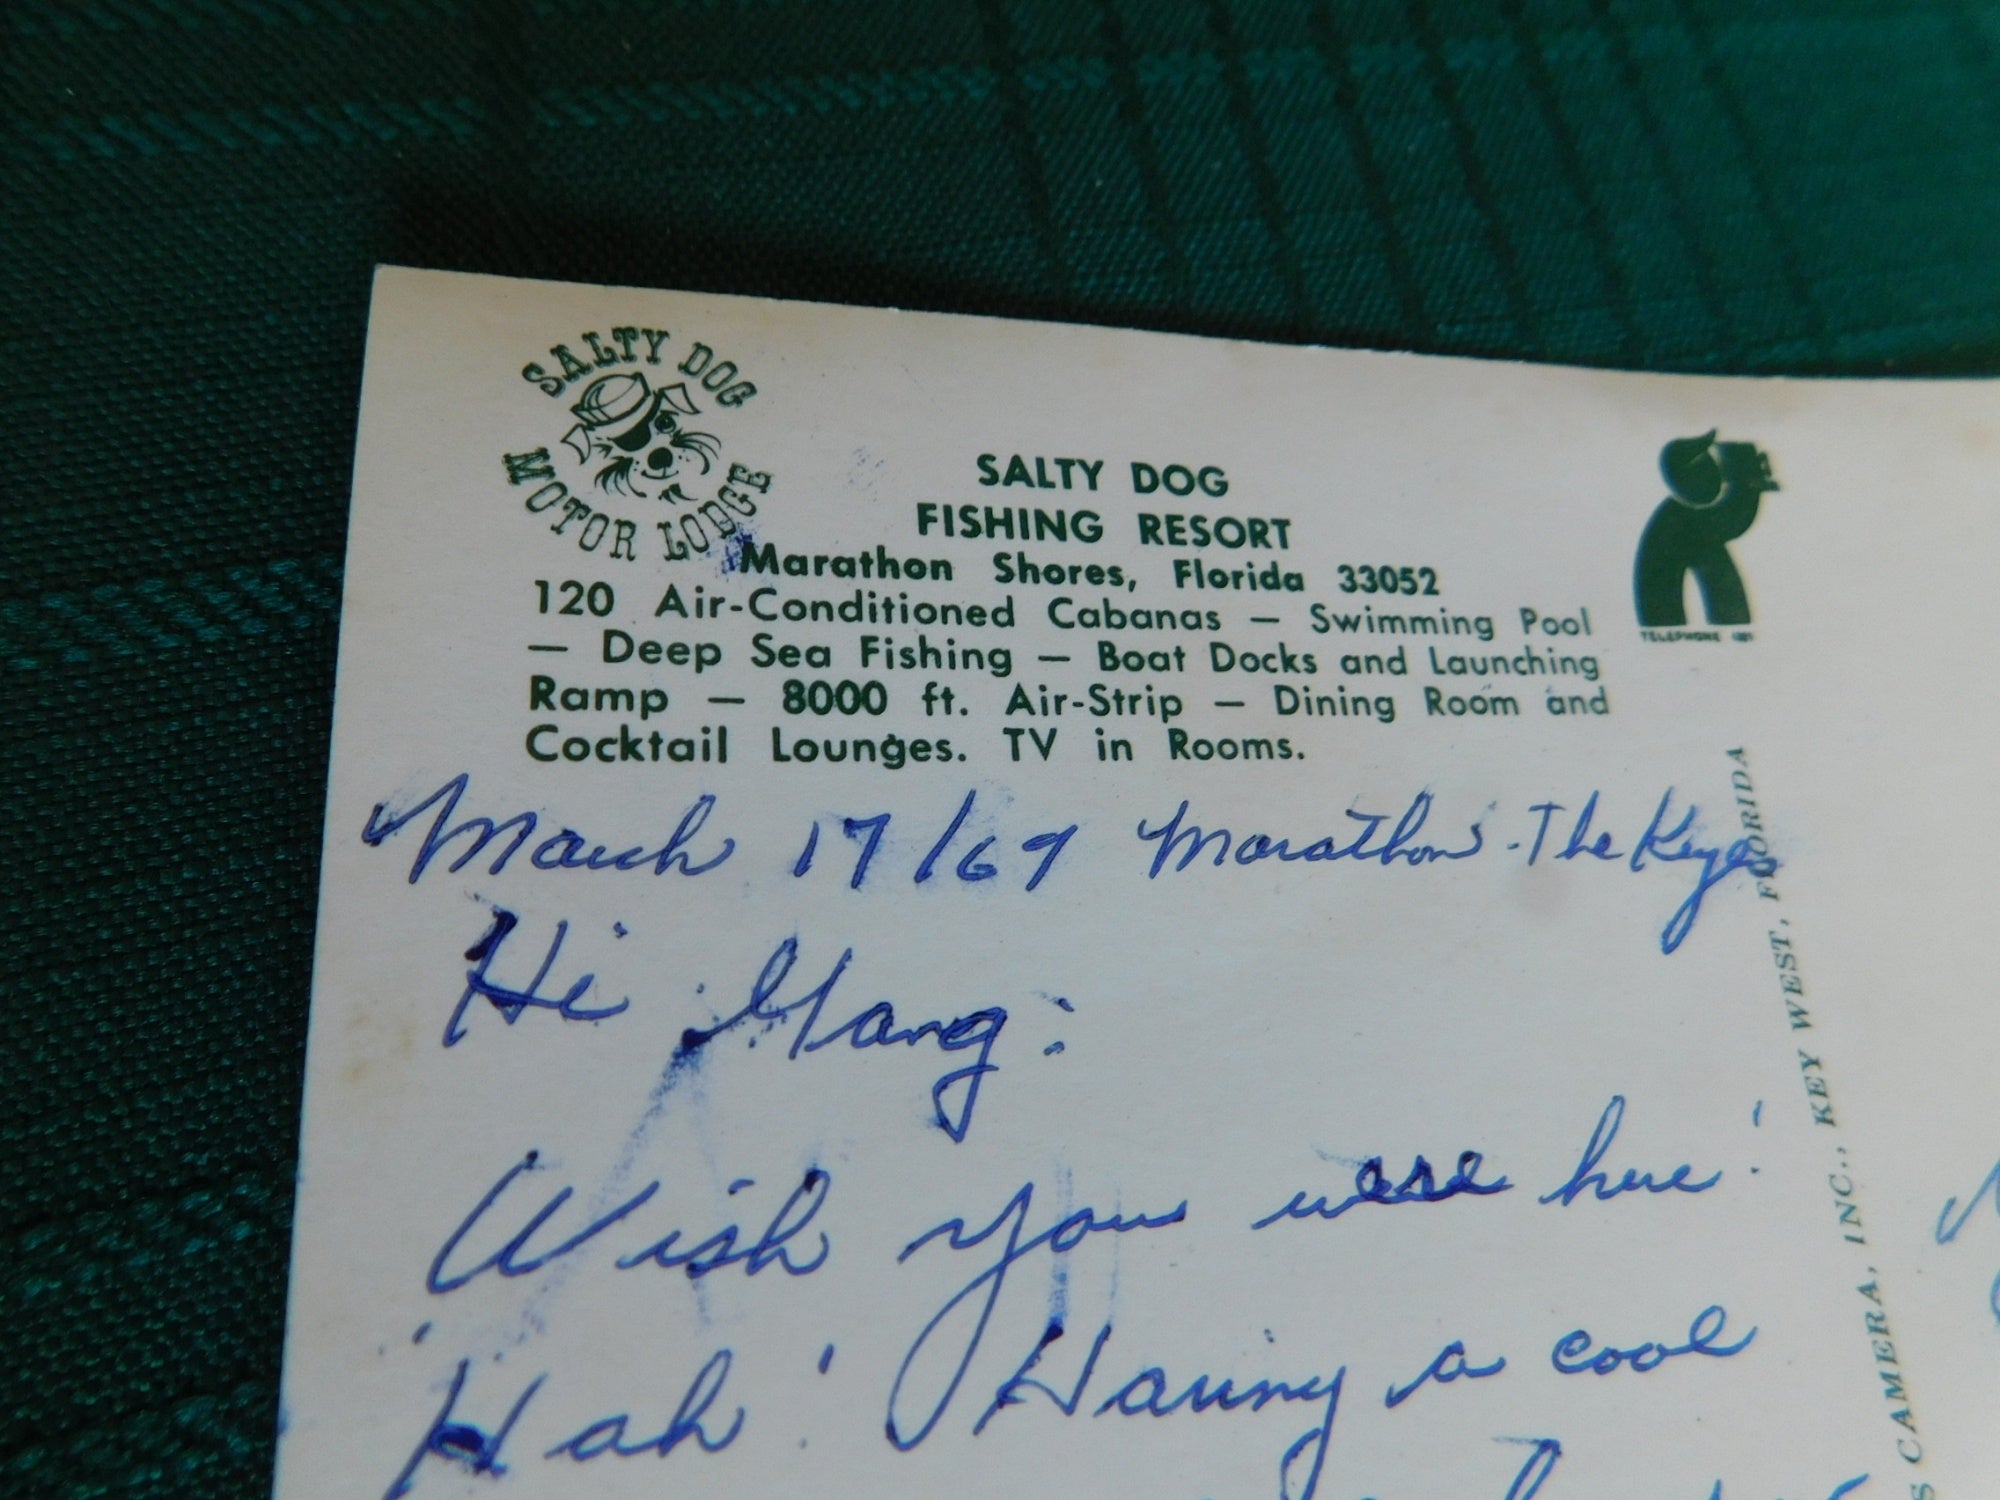 SALTY DOG
MOTOR LODGE
SALTY DOG
FISHING RESORT
Marathon Shores, Florida 33052
120 Air-Conditioned Cabanas — Swimming Pool
— Deep Sea Fishing — Boat Docks and Launching
Ramp — 8000 ft. Air-Strip — Dining Room and
Cocktail Lounges. TV in Rooms.
TELEPHONE
March 17/69 Marathon - The Keys
Hi Gang:
Wish you were here!
Hah! Having a cool
CAMERA, INC., KEY WEST, FLORIDA